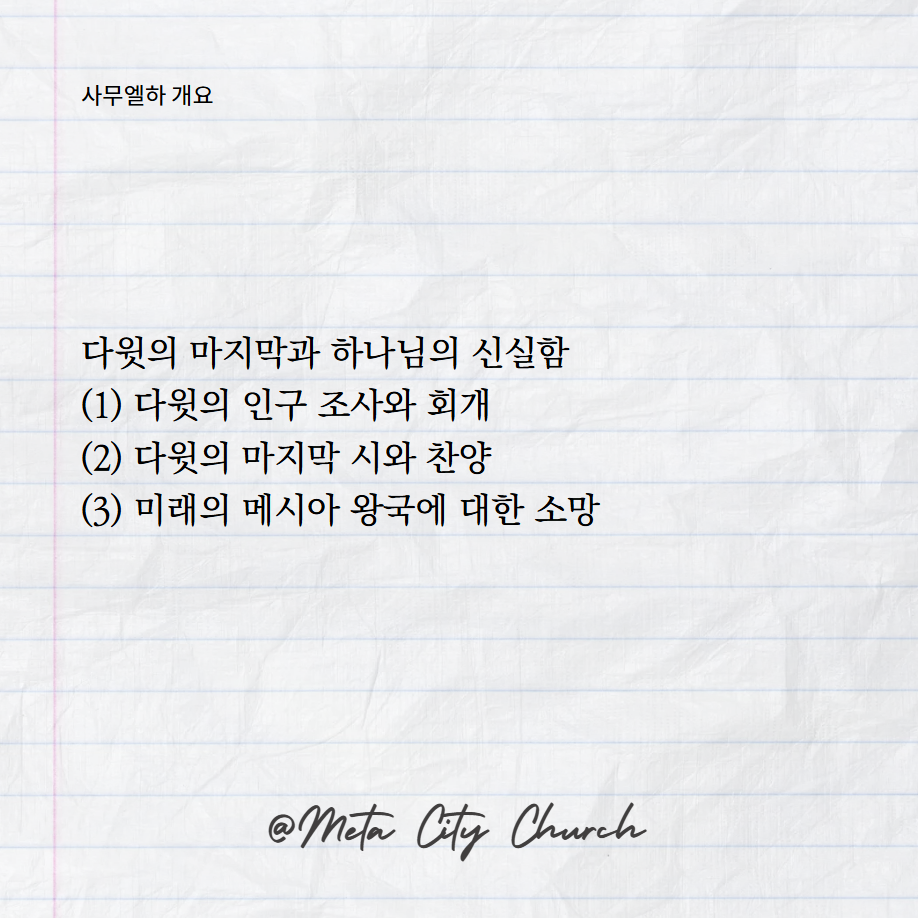 사무엘하 개요
다윗의 마지막과 하나님의 신실함
(1) 다윗의 인구 조사와 회개
(2) 다윗의 마지막 시와 찬양
(3) 미래의 메시아 왕국에 대한 소망
@Meta City Church